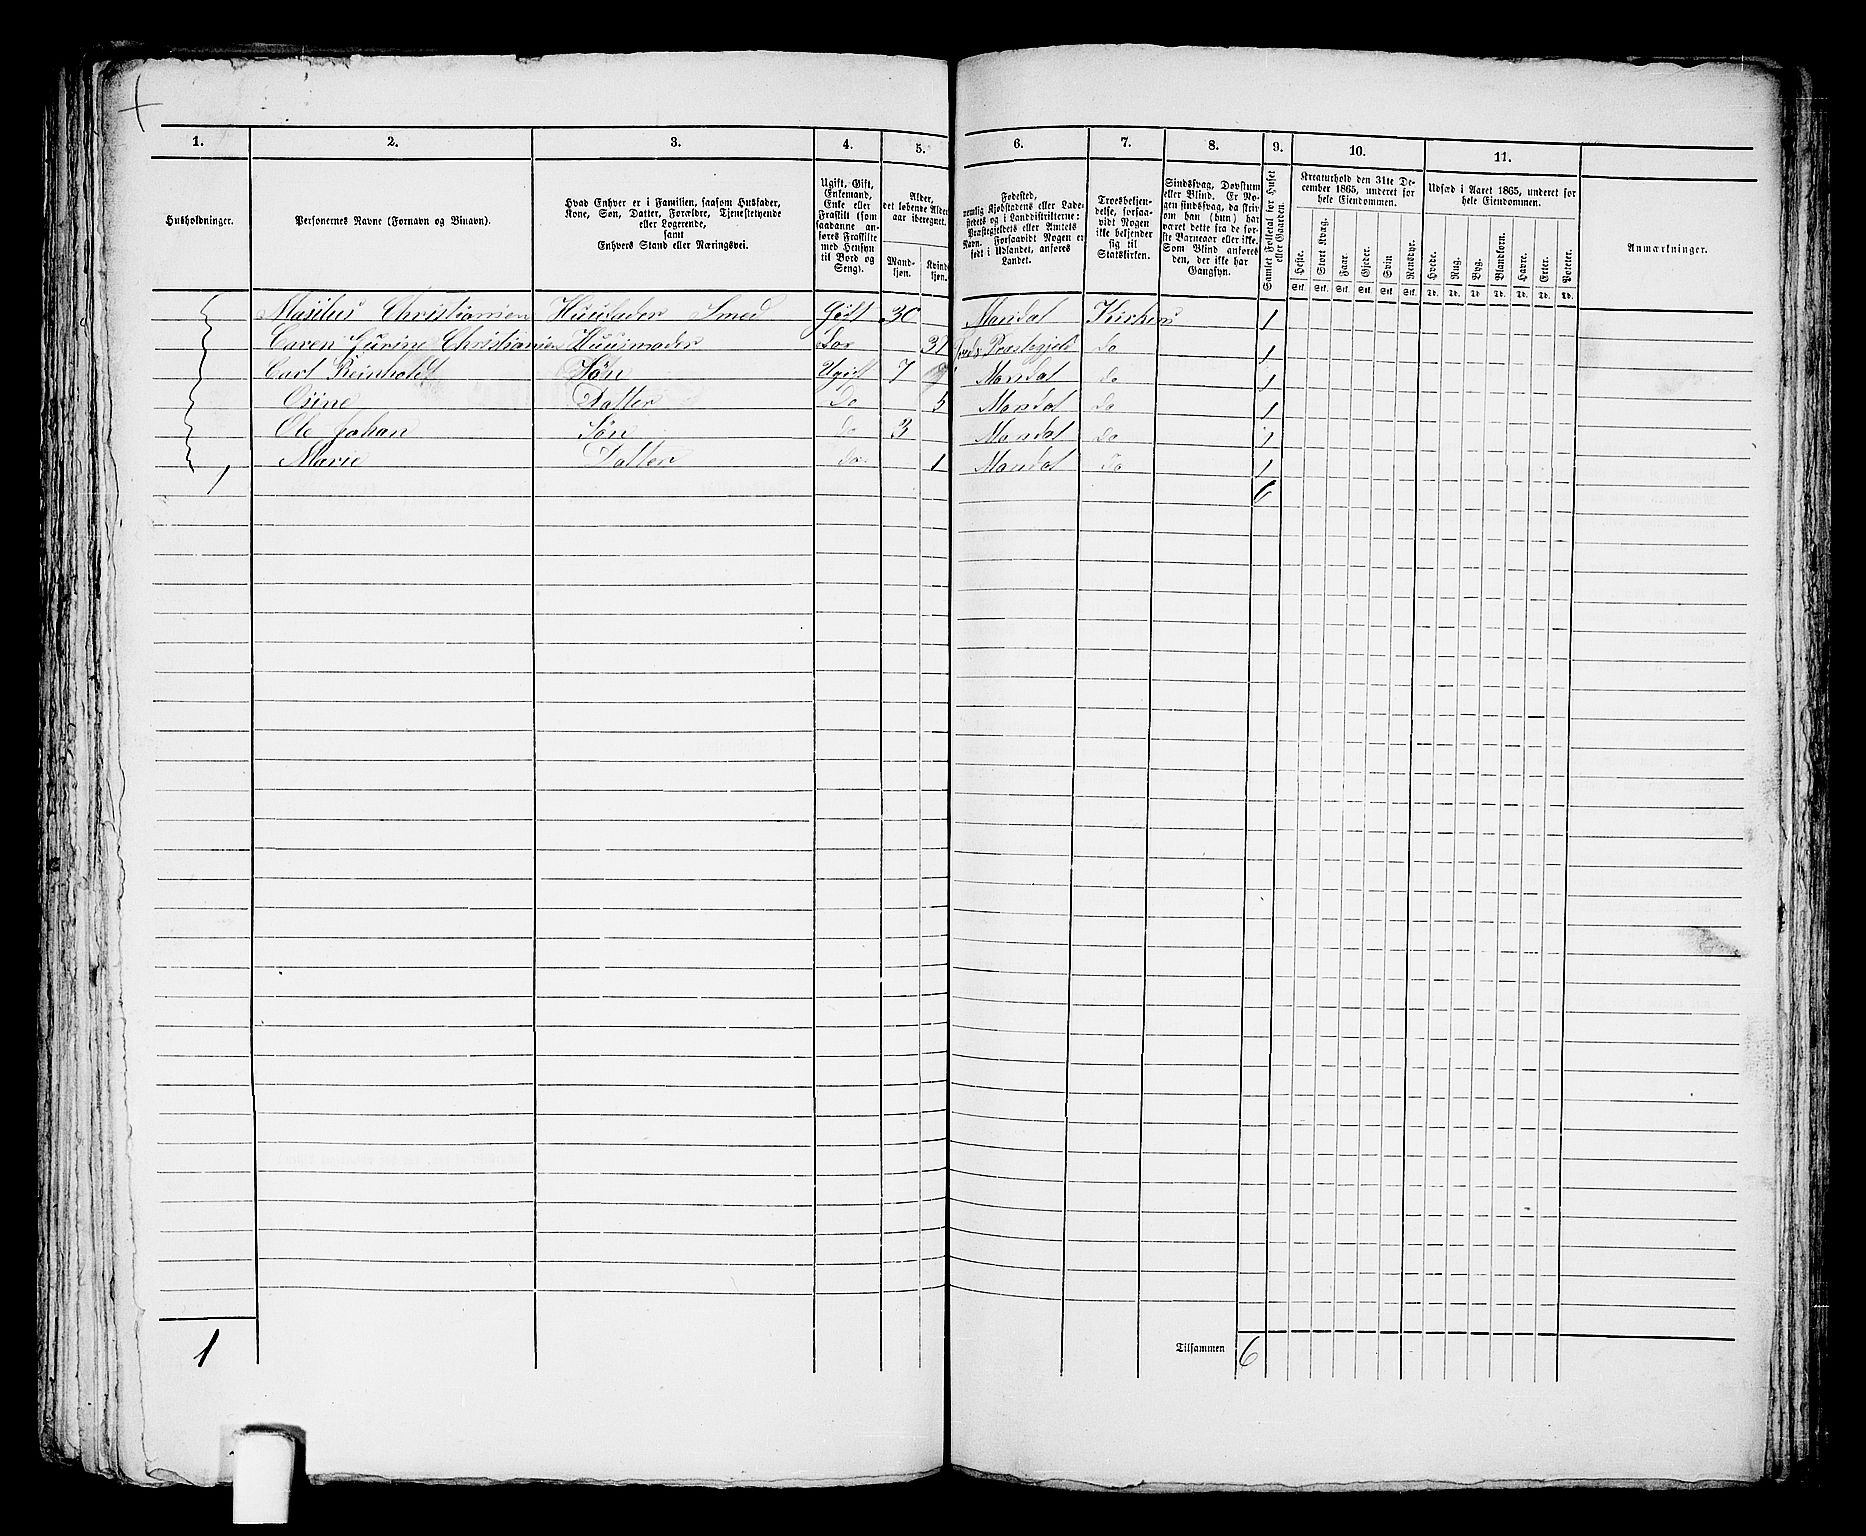 1. 2. 3. 4. 5. 6. 7. 8. 9. 10. 11.
Husholdninger.
Personernes Navne (Fornavn og Binavn).
Hvad Enhver er i Familien, saasom Husfader,
Kone, Søn, Datter, Forældre, Tjenestetyende
eller Logerende,
samt
Enhvers Stand eller Næringsvei.
Ugift, Gift,
Enkemand,
Enke eller
Fraskilt (som
saadanne an-
føres Fraskilte
med Hensyn
til Bord og
Seng).
Alder,
det løbende Alders-
aar iberegnet.
Mand-
kjøn.
Kvind-
kjøn.
Fødested,
nemlig Kjøbstadens eller Lade-
stedets og i Landdistrikterne:
Præstegjeldets eller Amtets
Navn. Forsaavidt Nogen er
født i Udlandet, anføres
Landet.
Troesbekjen-
delse, forsaa-
vidt Nogen
ikke bekjender
sig til
Statskirken.
Sindssvag, Døvstum
eller Blind. Er No-
gen sindssvag, da skri-
ves om han (hun) har
været dette fra de før-
ste Barneaar eller ikke.
Som Blind anføres
den, der ikke har
Gangsyn.
Samlet Folketal for Huset
eller Gaarden.
Kreaturhold den 31te De-
cember 1865, underet for
hele Eiendommen.
Heste. Stort Kvæg. Faar. Gjeder. Svin Rensdyr.
Stk. Stk. Stk. Stk. Stk. Stk.
Udsæd i Aaret 1865, underet for
hele Eiendommen.
Hvede. Rug. Byg. Blandkorn. Havre. Erter. Poteter.
Td. Td. Td. Td. Td. Td. Td.
Anmærkninger.
Christiansen Huusfader Smed Gift 30 Mandal Kirken 1
Caren Gurine Christiansen Huusmoder Do 31 Præstegjeld do 1
Carl Reinholdt Søn Ugift 7 Mandal do 1
Osine Datter Do 5 Mandal do 1
Ole Johan Søn do 3 Mandal do 1
1 Marie Datter do 1 Mandal do 1
6
1 Tilsammen 6